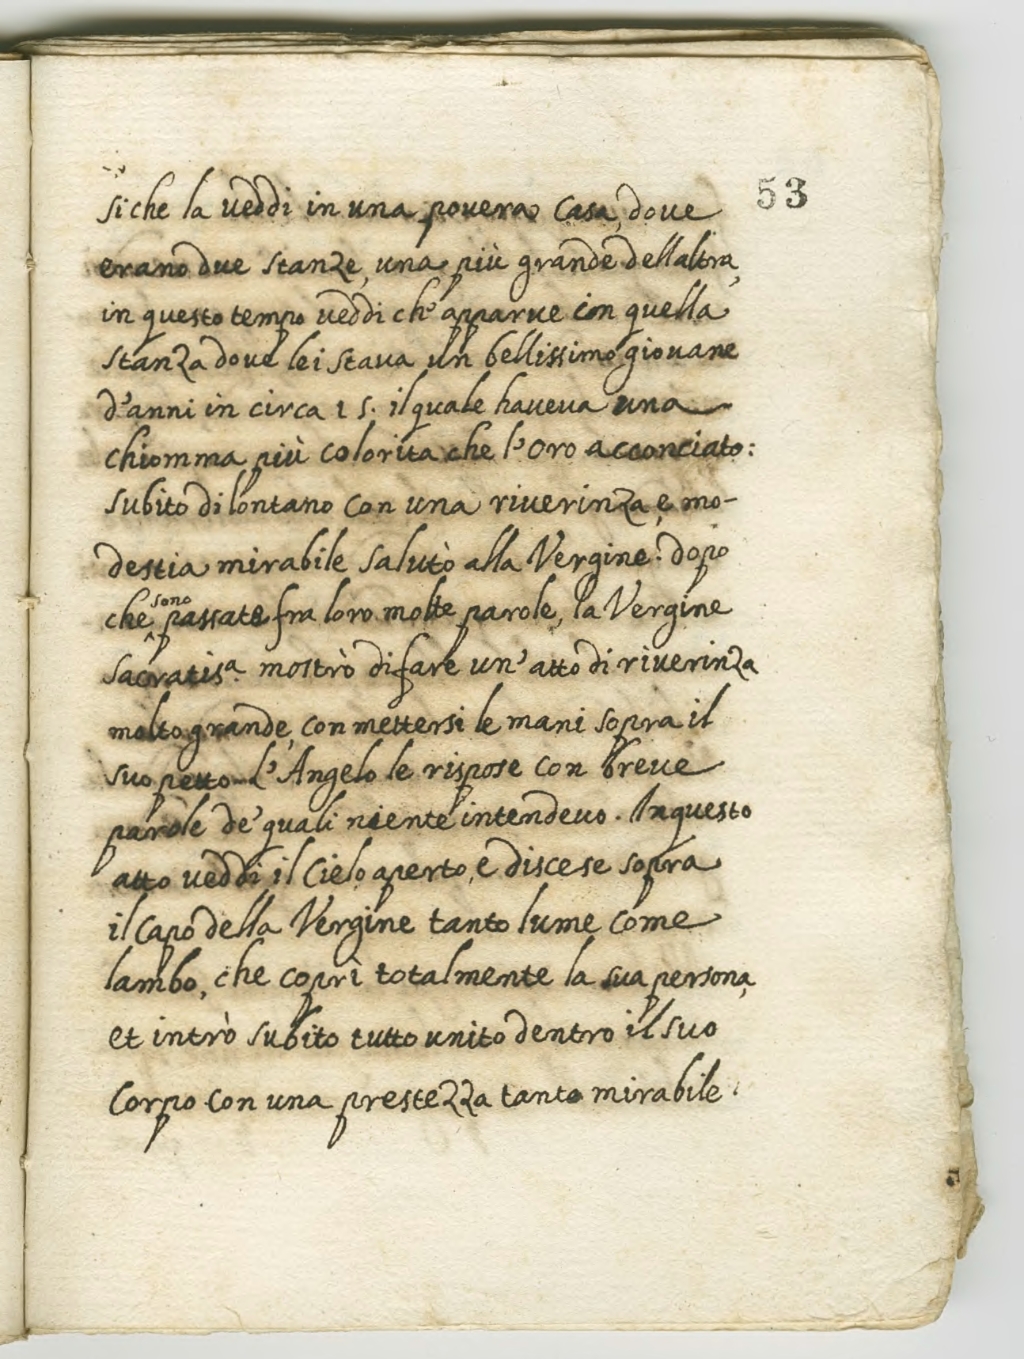 53
si che la veddi in una povera casa, dove
erano due stanze, una più grande dell altra,
in questo tempo veddi ch' apparve in quella
stanza dove lei stava un bellissimo giovane
d'anni in circa 15. il quale haveva una
chiomma più colorita che l'oro acconciato:
subito di lontano con una riverinza, e mo-
destia mirabile salutò alla Vergine: dopo
che ^sono passate fra loro molte parole, la Vergine
sacratis.a mostrò di fare un' atto di riverinza
molto grande, con mettersi le mani sopra il
suo petto l'Angelo le rispose con breve
parole de' quali niente intendevo. In questo
atto veddi il Cielo aperto, e discese sopra
il capo della Vergine tanto lume come
lambo, che coprì totalmente la sua persona,
et intrò subito tutto unito dentro il suo
Corpo con una prestezza tanto mirabile.